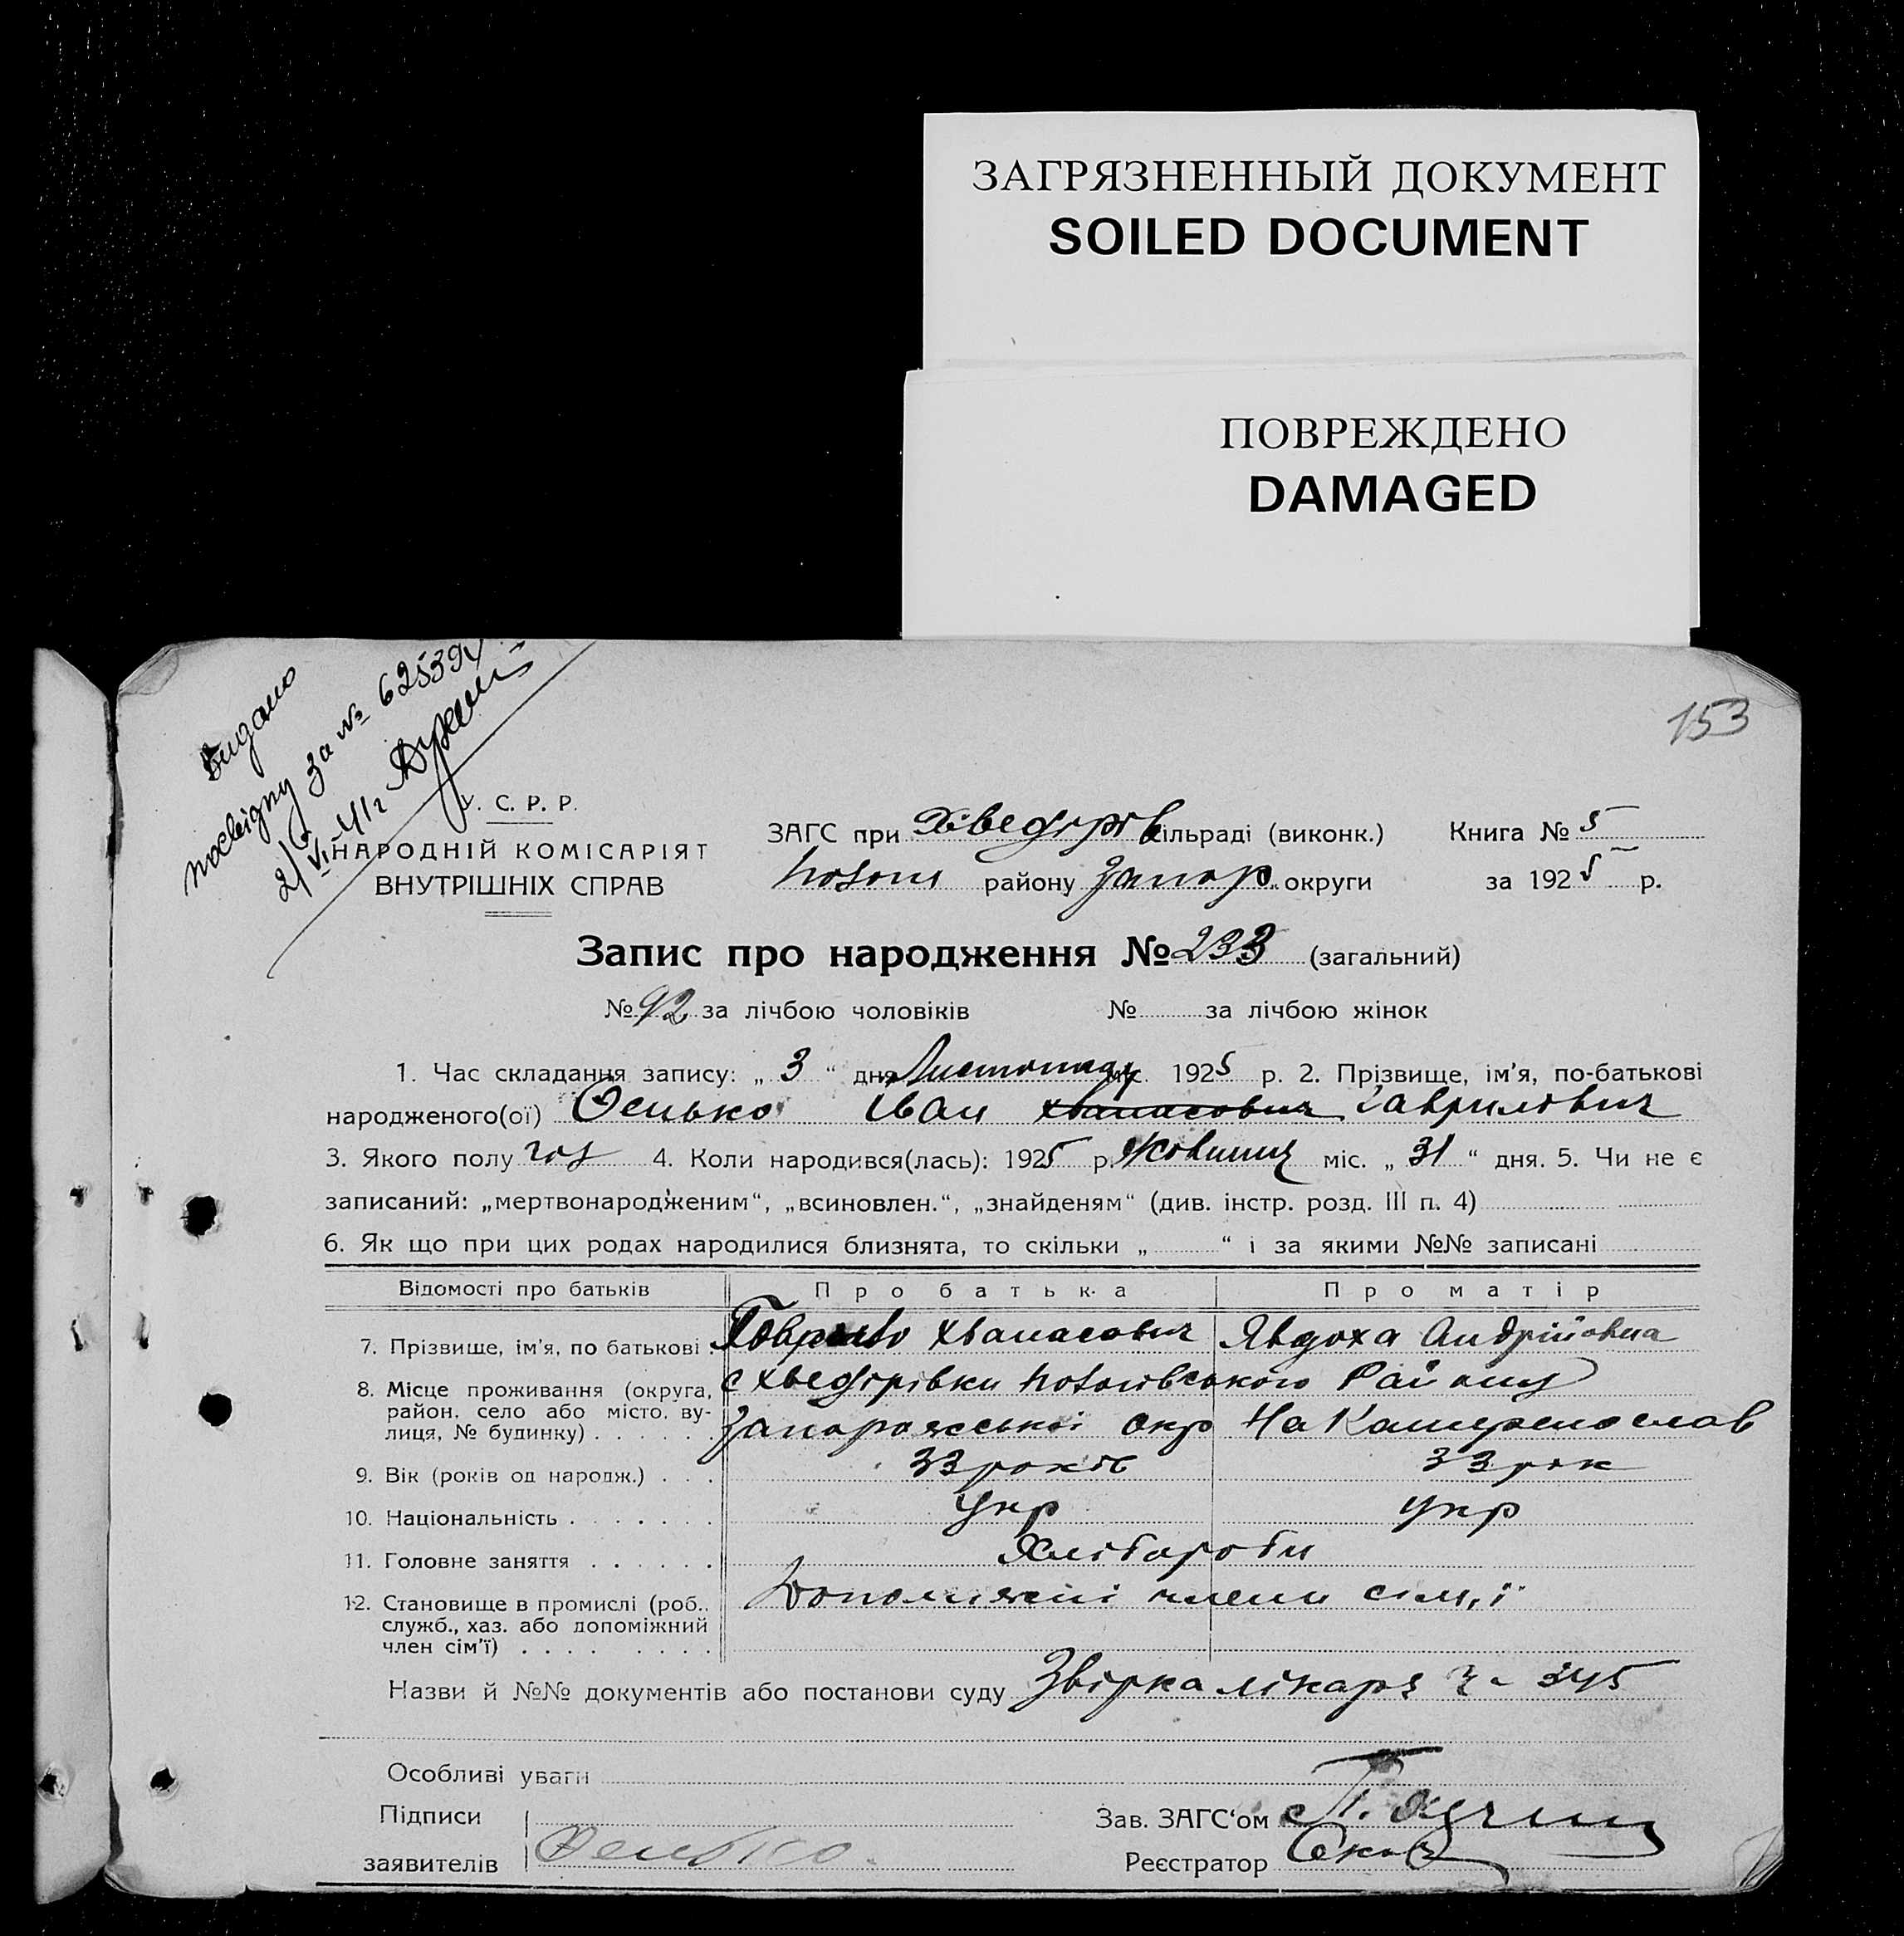 ЗАГРЯЗНЕННЫЙ ДОКУМЕНТ
SOILED DOCUMENT
ПОВРЕЖДЕНО
DAMAGED
153
Видано
посвідку за № 625394
2/VI-41г
У. С. Р. Р.
НАРОДНІЙ КОМІСАРІЯТ
ВНУТРІШНІХ СПРАВ
ЗАГС при Хведорів сільраді (виконк.) Книга № 5
району Запор. округи за 1925 р.
Запис про народження № 233 (загальний)
№ 92 за лічбою чоловіків № за лічбою жінок
1. Час складання запису: „ 3 “ дня Листопаду міс. 1925 р. 2. Прізвище, ім'я, по-батькові
народженого(ої) Фенько Іван Хванасович Гаврилович
3. Якого полу чол 4. Коли народився(лась): 1925 р. Жовтня міс. „ 31 “ дня. 5. Чи не є
записаний: „мертвонародженим“, „всиновлен.“, „знайденям“ (див. інстр. розд. III п. 4)
6. Як що при цих родах народилися близнята, то скільки „ “ і за якими №№ записані
Відомості про батьків Про батька Про матір
7. Прізвище, ім'я, по батькові Гаврило Хванасович Явдоха Андрійовна
8. Місце проживання (округа, район, село або місто, вулиця, № будинку) с Хведорівки Району
Запорожської окр
9. Вік (років од народж.) 33 років 33 рок
10. Національність Укр Укр
11. Головне заняття Хлібороби
12. Становище в промислі (роб., служб., хаз. або допоміжний член сім'ї) Допоміжні члени сім,ї
Назви й №№ документів або постанови суду лікаря 345
Особливі уваги
Підписи
заявителів Фенько.
Зав. ЗАГС'ом
Реєстратор